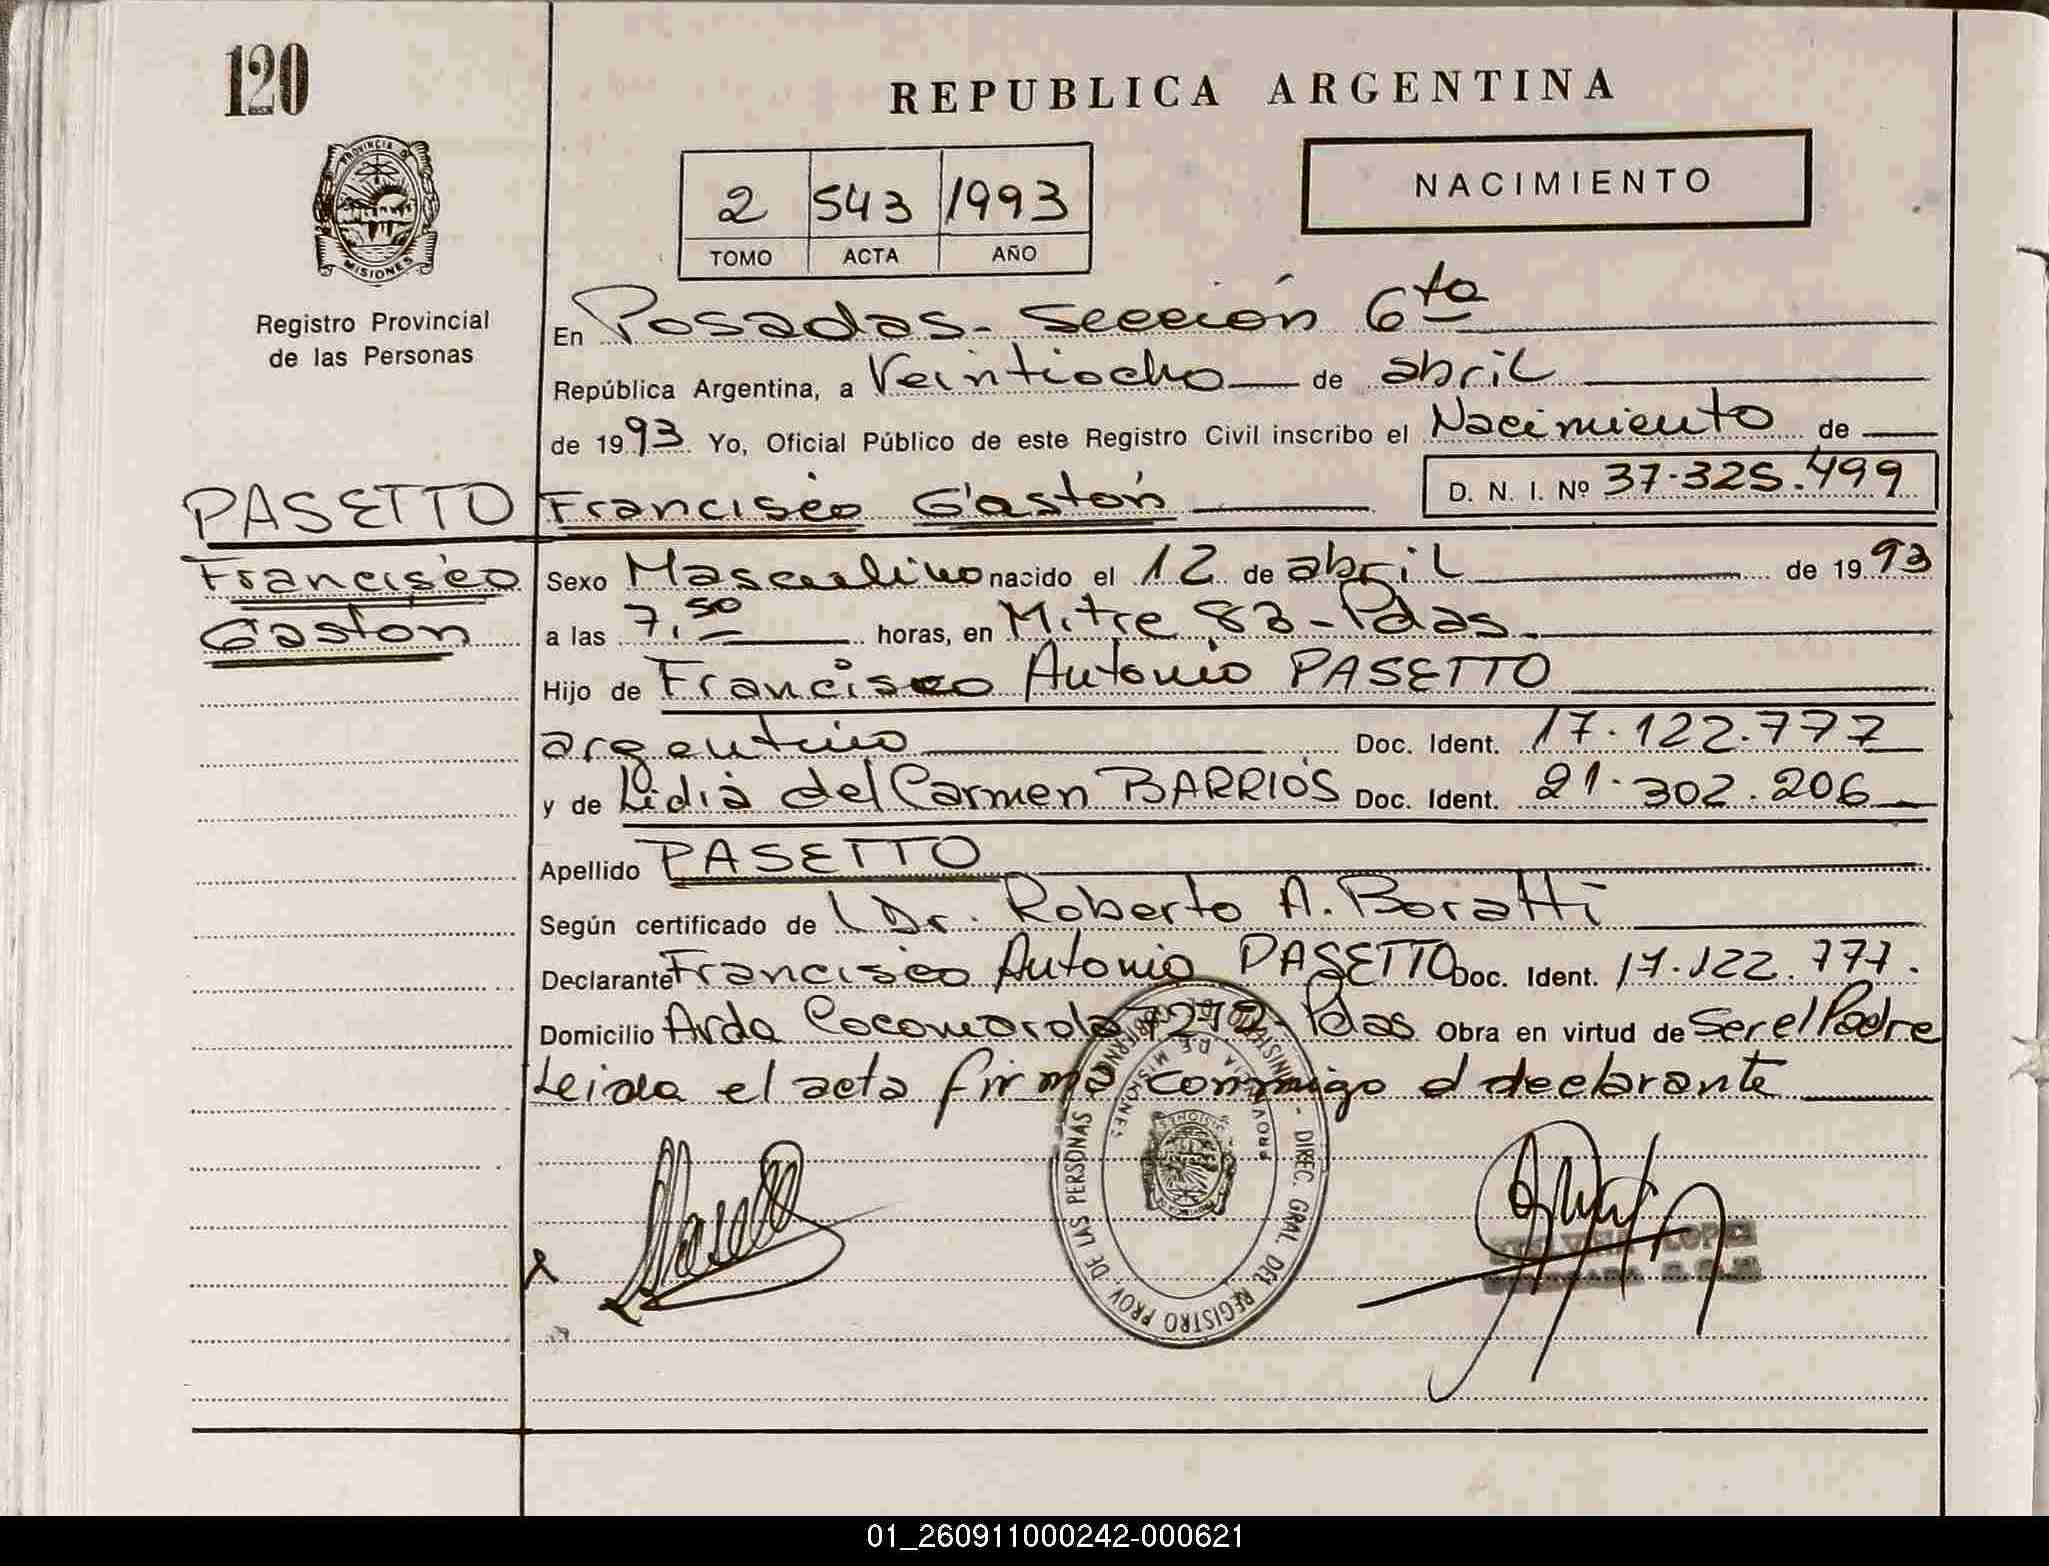 120
REPUBLICA ARGENTINA
PROVINCIA DE
MISIONES
Registro Provincial
de las Personas
2 543 1993
TOMO ACTA AÑO
NACIMIENTO
En Posadas - Sección 6ta
República Argentina, a Veintiocho de abril
de 1993 Yo, Oficial Público de este Registro Civil inscribo el Nacimiento de
D. N. I. Nº 37.325.499
PASETTO Francisco Gastón
Francisco
Gastón
Sexo Masculino nacido el 12 de abril de 1993
a las 7,50 horas, en Mitre 83 - Pdas.
Hijo de Francisco Antonio PASETTO
argentino Doc. Ident. 17.122.777
y de Lidia del Carmen BARRIOS Doc. Ident. 21.302.206
Apellido PASETTO
Según certificado de Dr. Roberto A. Boratti
Declarante Francisco Antonio PASETTO Doc. Ident. 17.122.777.
Domicilio Avda Cocomarola Pdas Obra en virtud de Ser el Padre
Leida el acta firma conmigo el declarante
DIREC. GRAL. DEL REGISTRO PROV. DE LAS PERSONAS
PROVINCIA DE MISIONES
01_260911000242-000621